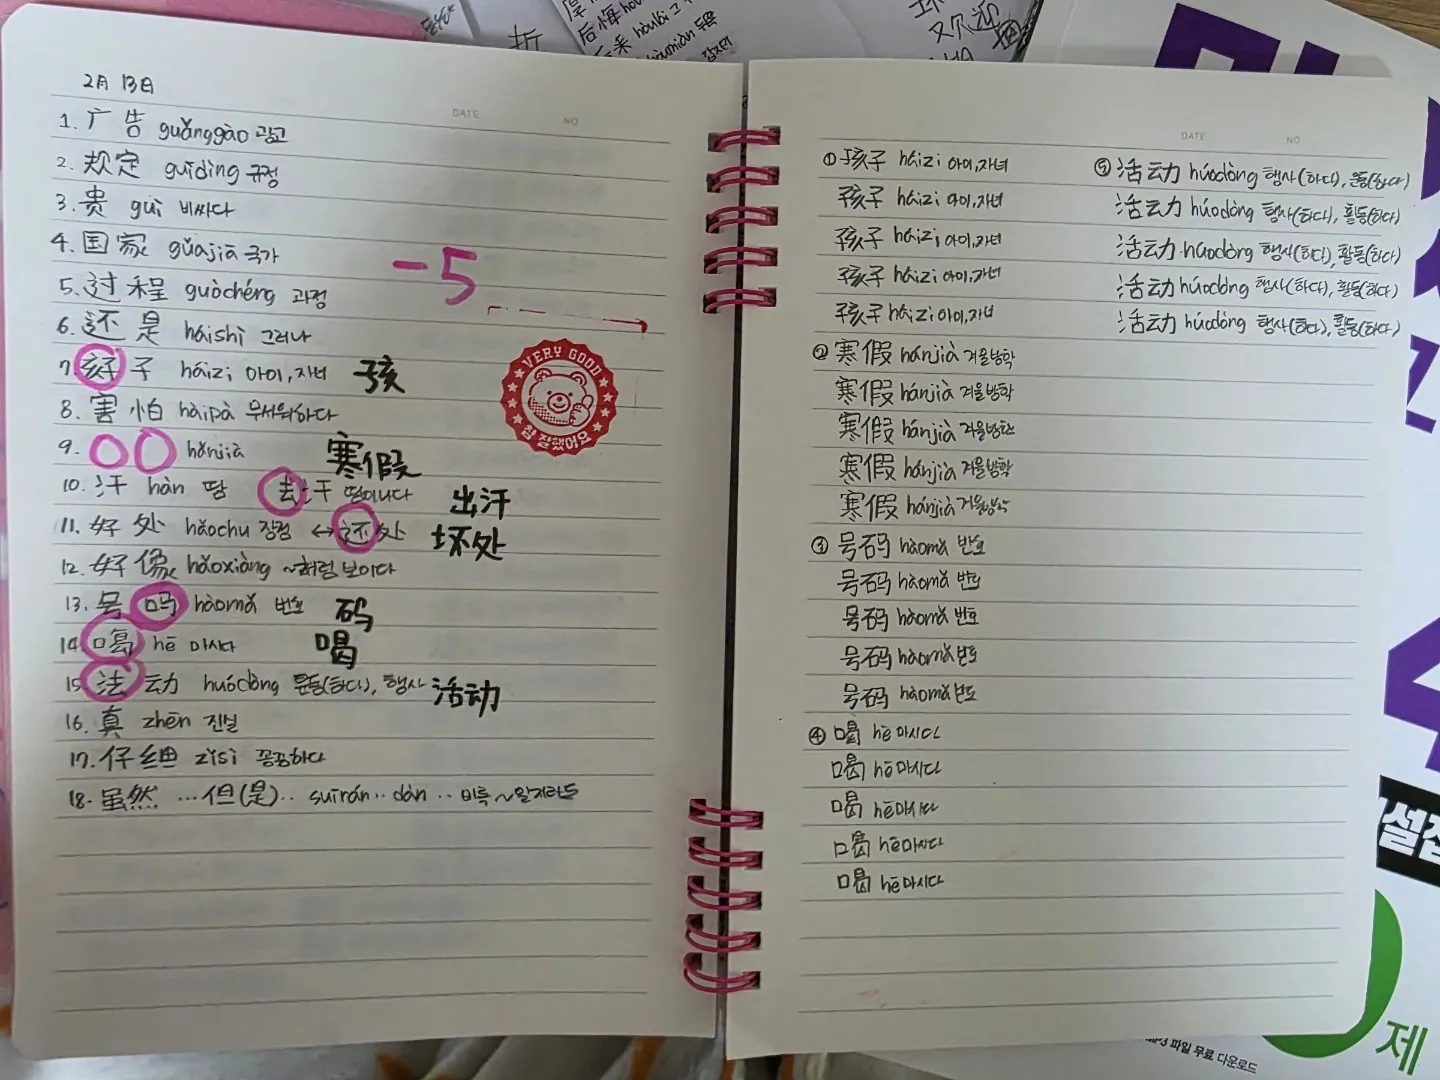 2月 13日
DATE NO
1. 广告 guǎnggào 광고
2. 规定 guīdìng 규정
3. 贵 guì 비싸다
4. 国家 guǎjiā 국가
5. 过程 guòchéng 과정
6. 还是 háishì 그러나
7. 子 háizi 아이, 자녀 孩
8. 害怕 hàipà 무서워하다
9. 〇〇 hánjià 寒假
10. 汗 hàn 땀 去汗 땀이나다 出汗
11. 好处 hǎochu 장점 ↔ 还处 坏处
12. 好像 hǎoxiàng ~처럼 보이다
13. 号吗 hàomǎ 번호 码
14. 喝 hē 마시다 喝
15. 法动 huódòng 운동(하다), 행사 活动
16. 真 zhēn 진실
17. 仔细 zǐsì 꼼꼼하다
18. 虽然 ...但(是).. suīrán.. dàn .. 비록 ~일지라도
-5
VERY GOOD
참 잘했어요
DATE NO
① 孩子 háizi 아이, 자녀
孩子 háizi 아이, 자녀
孩子 háizi 아이, 자녀
孩子 háizi 아이, 자녀
孩子 háizi 아이, 자녀
② 寒假 hánjià 겨울방학
寒假 hánjià 겨울방학
寒假 hánjià 겨울방학
寒假 hánjià 겨울방학
寒假 hánjià 겨울방학
③ 号码 hàomǎ 번호
号码 hàomǎ 번호
号码 hàomǎ 번호
号码 hàomǎ 번호
号码 hàomǎ 번호
④ 喝 hē 마시다
喝 hē 마시다
喝 hē 마시다
喝 hē 마시다
喝 hē 마시다
⑤ 活动 húodòng 행사(하다), 활동(하다)
活动 húodòng 행사(하다), 활동(하다)
活动 húodòng 행사(하다), 활동(하다)
活动 húodòng 행사(하다), 활동(하다)
活动 húodòng 행사(하다), 활동(하다)
后悔
hòumiàn
欢迎
4
제
MP3 파일 무료 다운로드